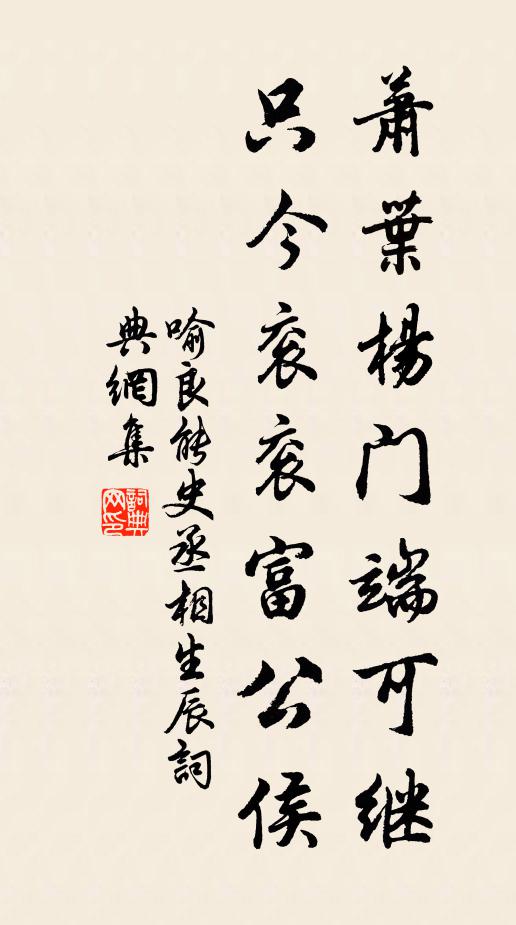 蕭葉楊門端可继
只今衮衮富公侯
喻良能史丞相生辰詞
典網集
詞典网印